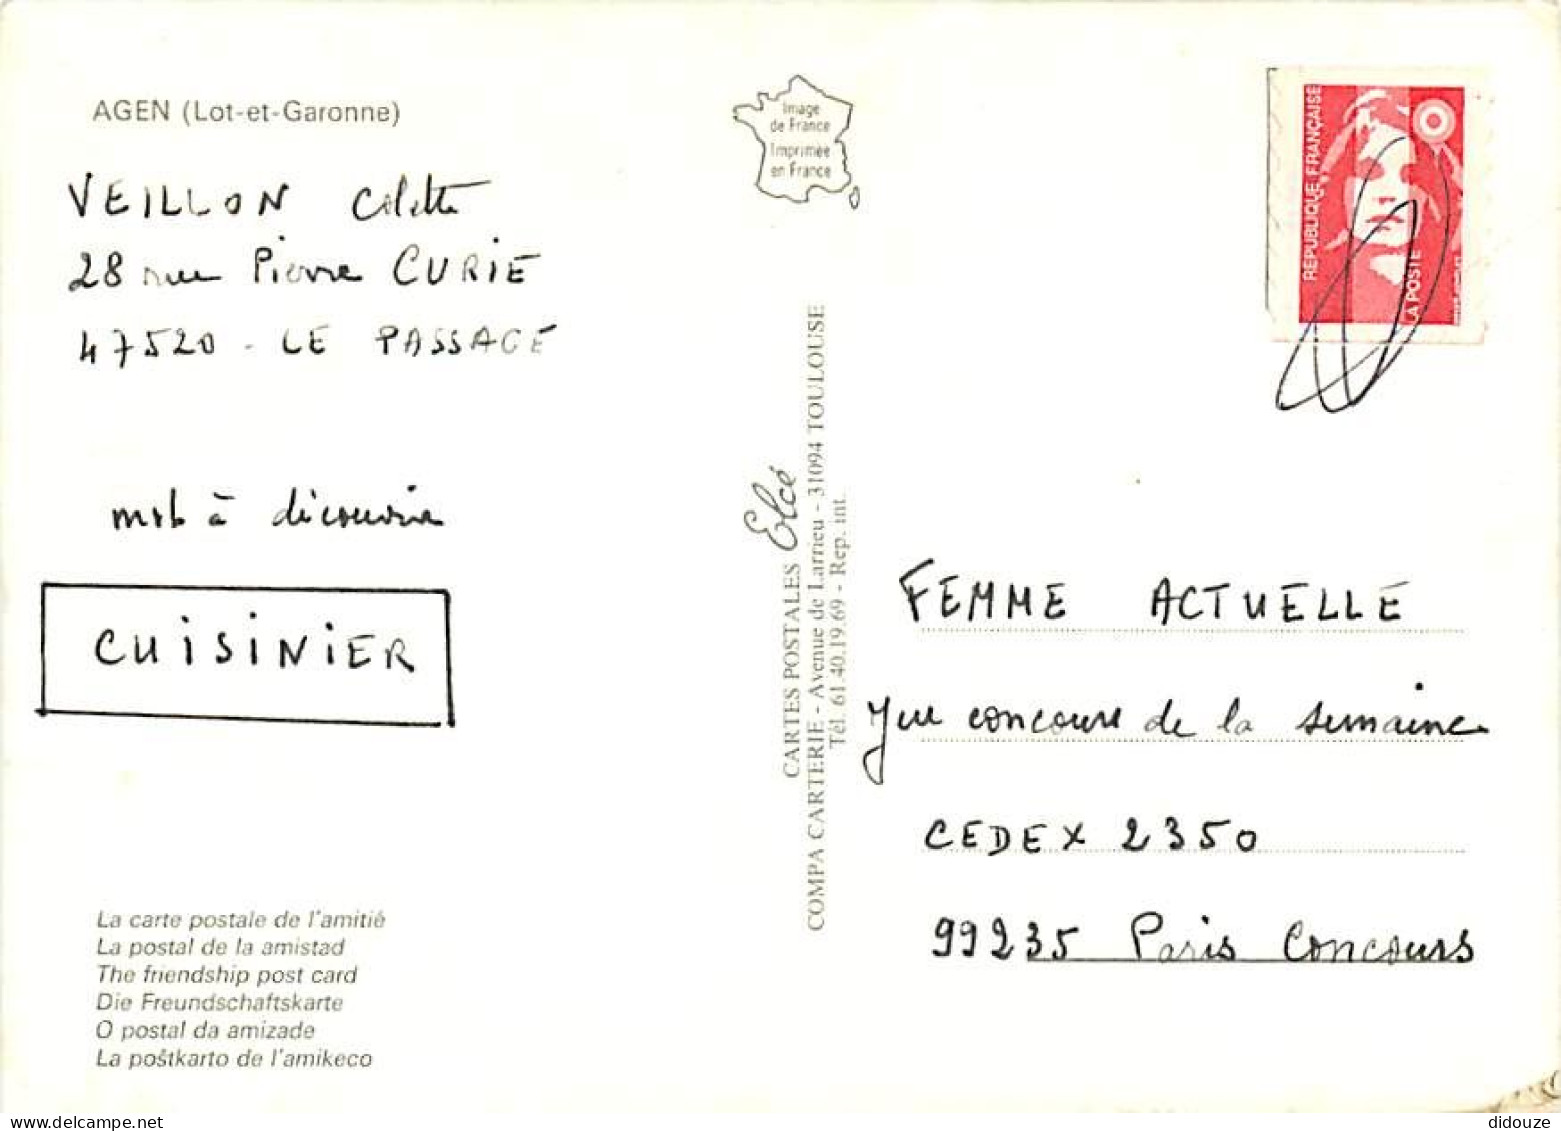 AGEN (Lot-et-Garonne)
VEILLON Colette
28 rue Pierre CURIE
47520 - LE PASSAGE
mot à découvrir
CUISINIER
La carte postale de l'amitié
La postal de la amistad
The friendship post card
Die Freundschaftskarte
O postal da amizade
La poŝtkarto de l'amikeco
Image
de France
Imprimée
en France
CARTES POSTALES Elcé
COMPA CARTERIE - Avenue de Larrieu - 31094 TOULOUSE
Tél. 61.40.19.69 - Rep. int.
RÉPUBLIQUE FRANÇAISE
LA POSTE
FEMME ACTUELLE
Jeu concours de la semaine
CEDEX 2350
99235 Paris Concours
didouze